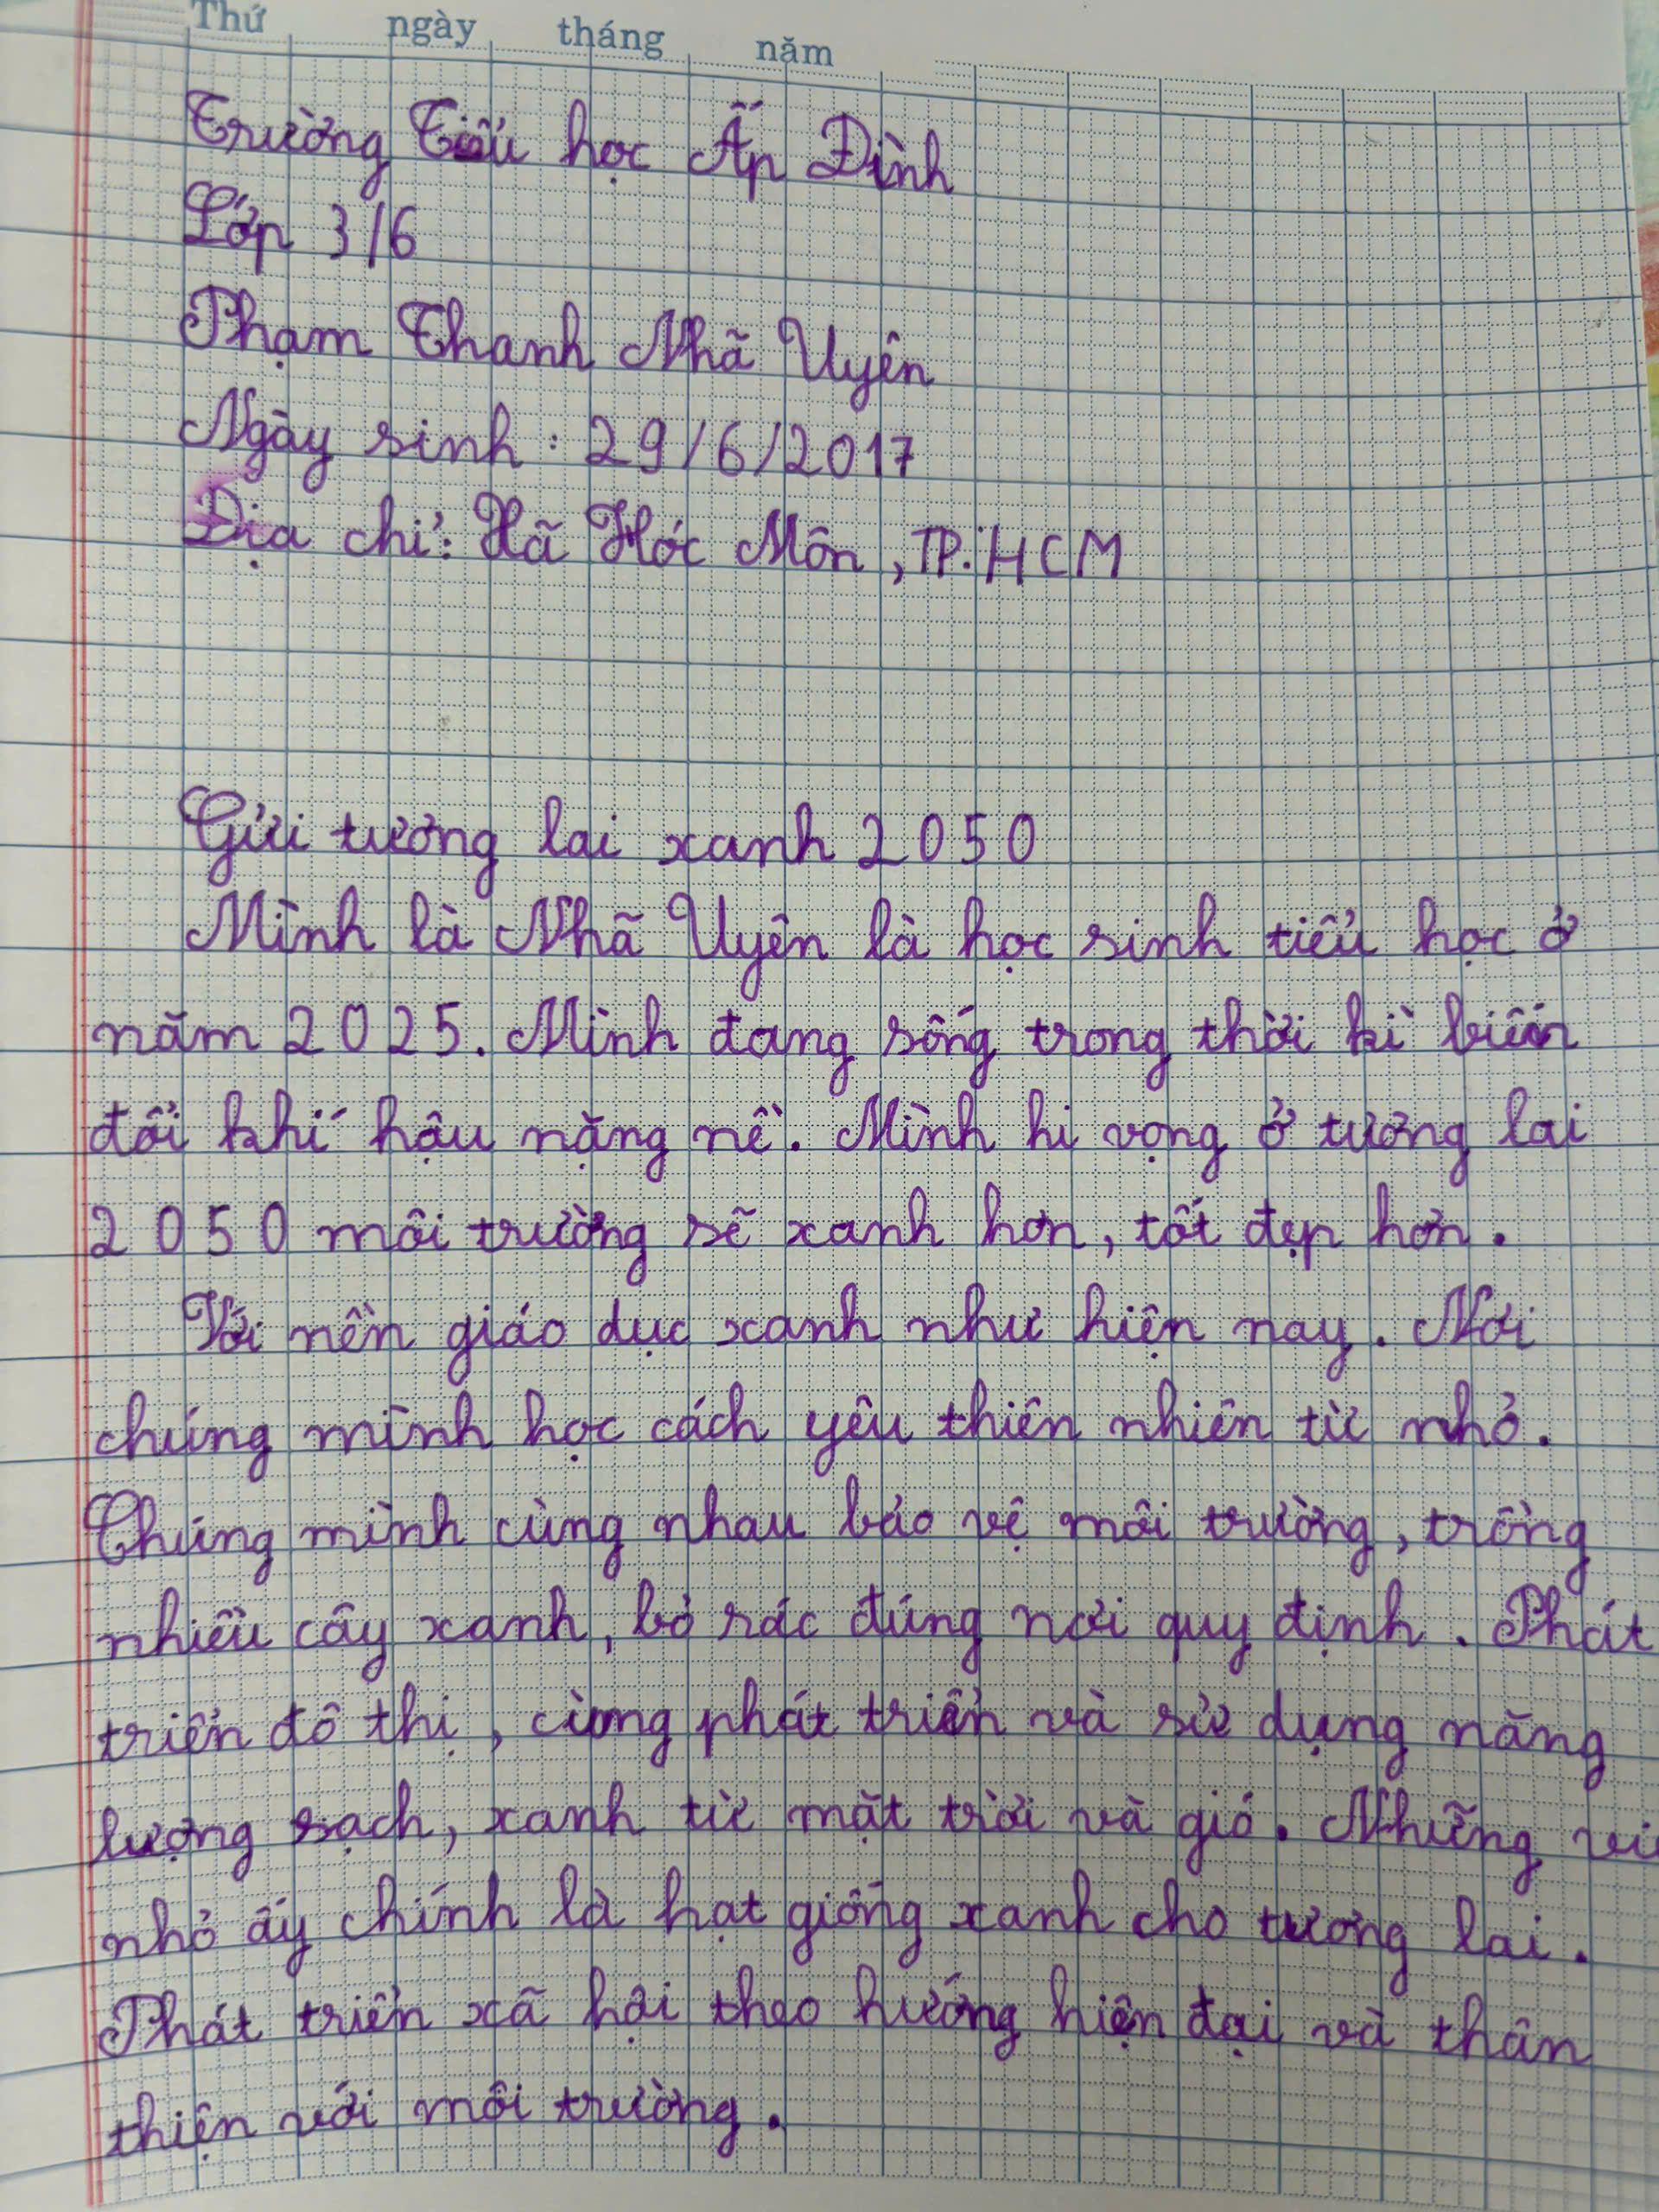 Thứ ngày tháng năm
Trường Tiểu học Ấp Đình
Lớp 3/6
Phạm Thanh Nhã Uyên
Ngày sinh: 29/6/2017
Địa chỉ: Xã Hóc Môn, TP.HCM
Gửi tương lai xanh 2050
Mình là Nhã Uyên là học sinh tiểu học ở
năm 2025. Mình đang sống trong thời kì biến
đổi khí hậu nặng nề. Mình hi vọng ở tương lai
2050 môi trường sẽ xanh hơn, tốt đẹp hơn.
Với nền giáo dục xanh như hiện nay. Nơi
chúng mình học cách yêu thiên nhiên từ nhỏ.
Chúng mình cùng nhau bảo vệ môi trường, trồng
nhiều cây xanh, bỏ rác đúng nơi quy định. Phát
triển đô thị, cùng phát triển và sử dụng năng
lượng sạch, xanh từ mặt trời và gió. Những
nhỏ ấy chính là hạt giống xanh cho tương lai.
Phát triển xã hội theo hướng hiện đại và thân
thiện với môi trường.